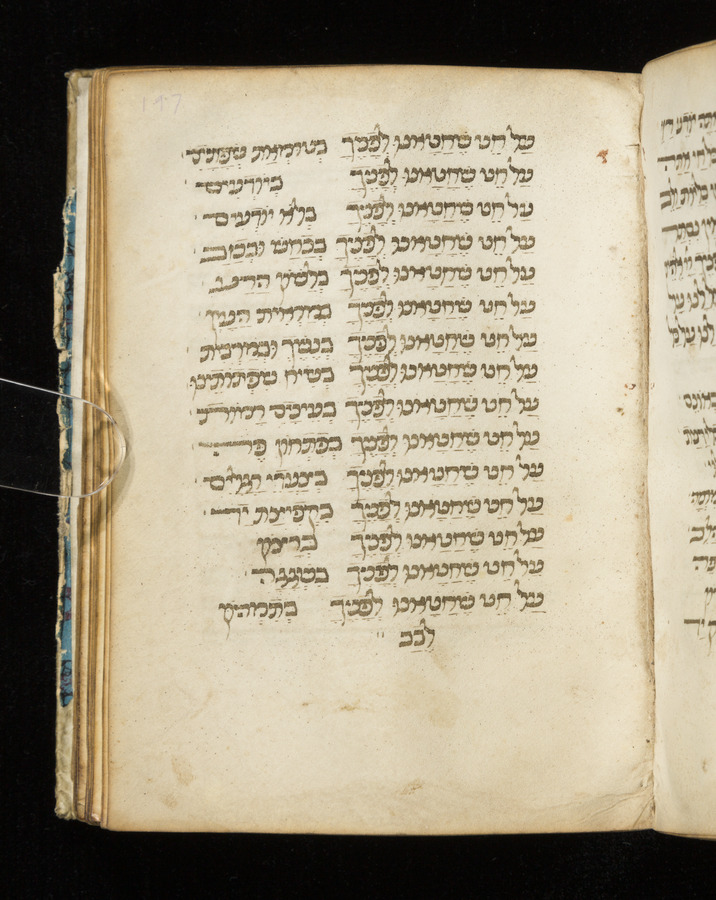 147
על חט שחטאנו לפניך בטומאת שפתים
על חט שחטאנו לפניך ביודעים
על חט שחטאנו לפניך בלא יודעים
על חט שחטאנו לפניך בכחש ובכזב
על חט שחטאנו לפניך בלשון הרע
על חט שחטאנו לפניך במראית העין
על חט שחטאנו לפניך בנשך ובמרבית
על חט שחטאנו לפניך בשיח שפתותינו
על חט שחטאנו לפניך בעינים
על חט שחטאנו לפניך בפתחון פה
על חט שחטאנו לפניך בצעדי רגלים
על חט שחטאנו לפניך בקפיצת יד
על חט שחטאנו לפניך ברצון
על חט שחטאנו לפניך בשגגה
על חט שחטאנו לפניך בתמהון
לבב